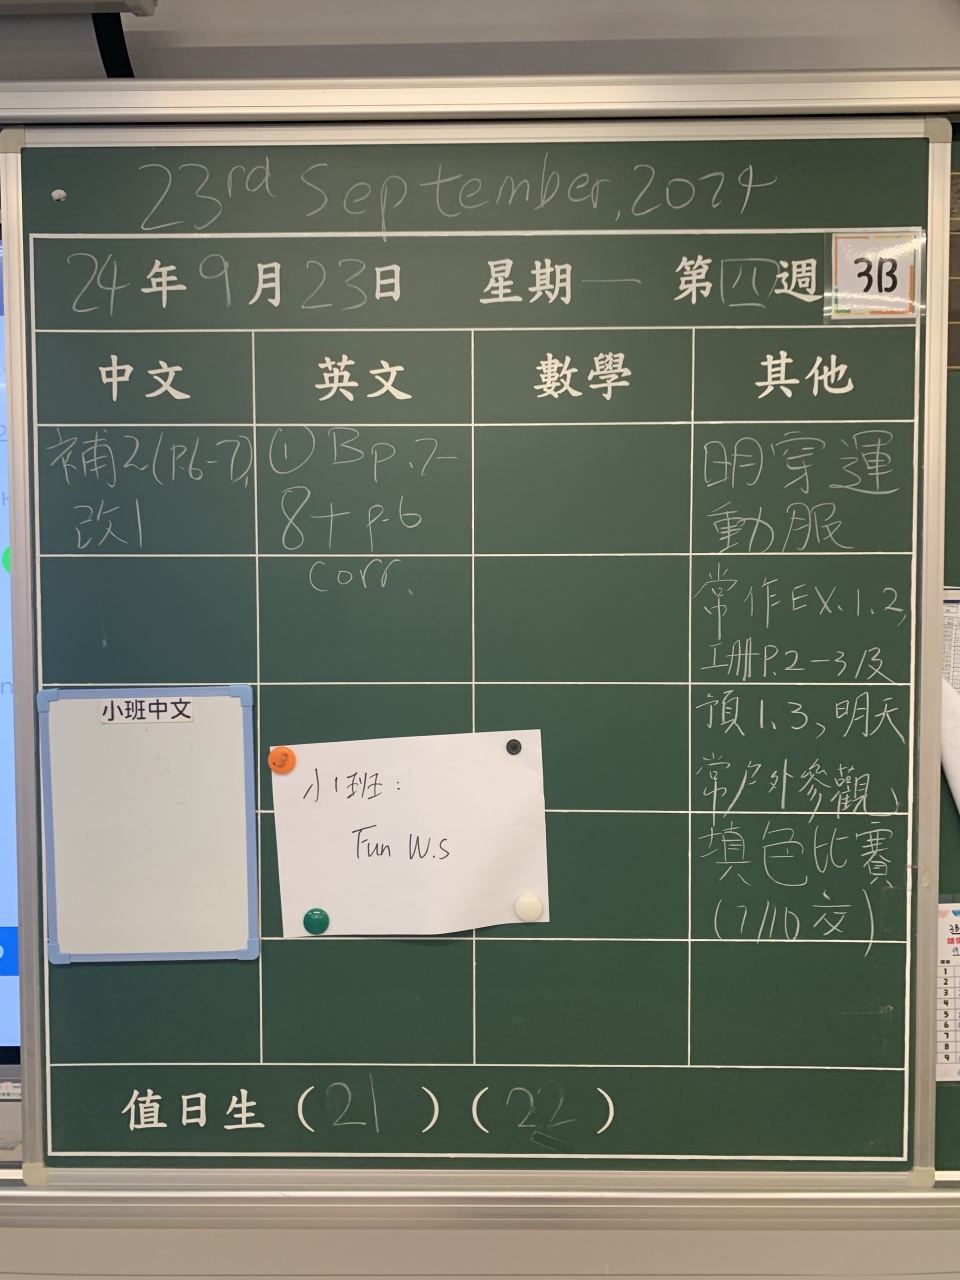 23rd September, 2024
24年9月23日 星期一 第四週 3B
中文 英文 數學 其他
補2(P.6-7),
改1
① B p.7-
8+p.6
corr.
明穿運
動服
常作EX.1.2,
工冊P.2-3及
預1.3,明天
常戶外參觀,
填色比賽
(7/10交)
小班中文
小班:
Fun W.S
值日生(21)(22)
1
2
3
4
5
6
7
8
9